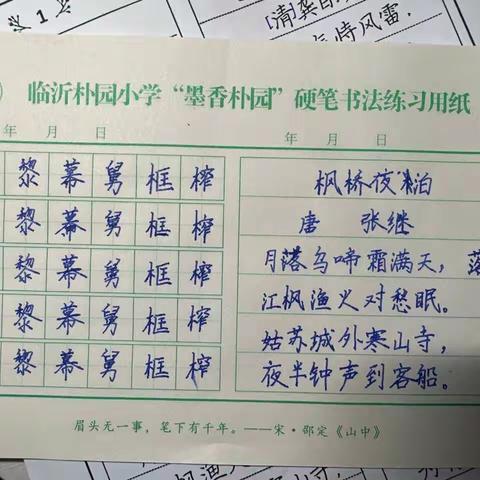 [清]龚自
恃风雷,
临沂朴园小学“墨香朴园”硬笔书法练习用纸
年 月 日 年 月 日
黎 幕 舅 框 榨
黎 幕 舅 框 榨
黎 幕 舅 框 榨
黎 幕 舅 框 榨
黎 幕 舅 框 榨
枫桥夜泊
唐 张继
月落乌啼霜满天,
江枫渔火对愁眠。
姑苏城外寒山寺,
夜半钟声到客船。
眉头无一事,笔下有千年。——宋·邵定《山中》